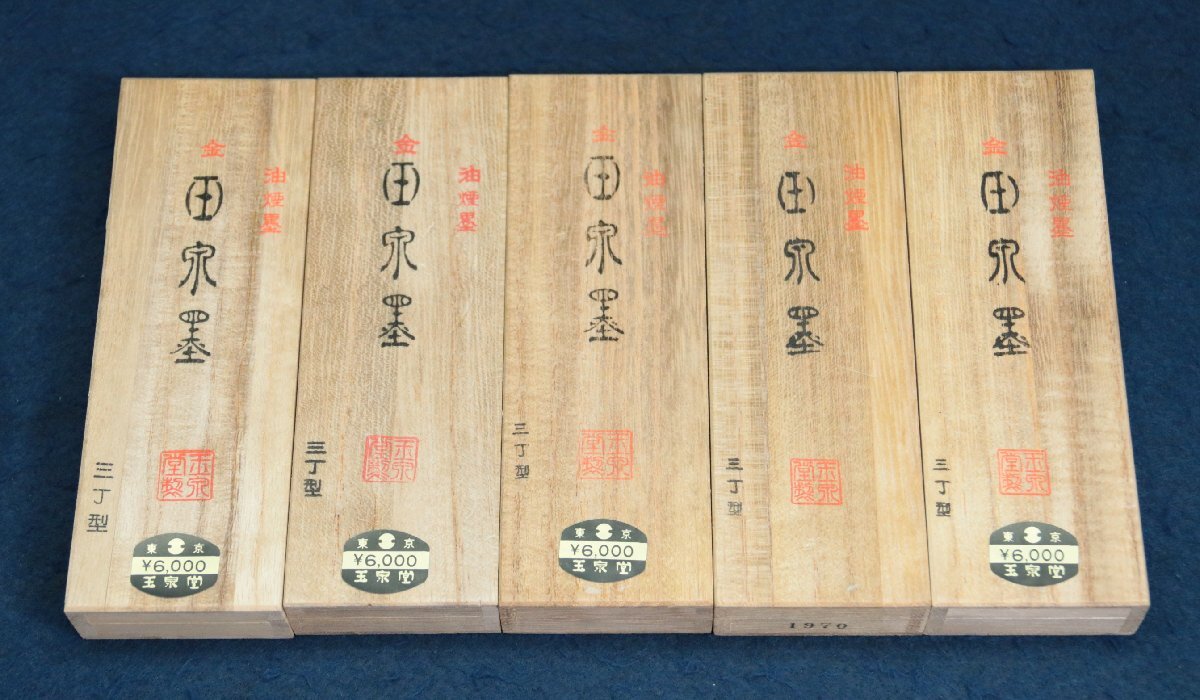 金
油煙墨
泉墨
玉泉
堂製
三丁型
東京
¥6,000
玉泉堂
金
油煙墨
泉墨
玉泉
堂製
三丁型
東京
¥6,000
玉泉堂
金
油煙墨
泉墨
玉泉
堂製
三丁型
東京
¥6,000
玉泉堂
金
油煙墨
泉墨
玉泉
堂製
三丁型
1970
金
油煙墨
泉墨
玉泉
堂製
三丁型
東京
¥6,000
玉泉堂